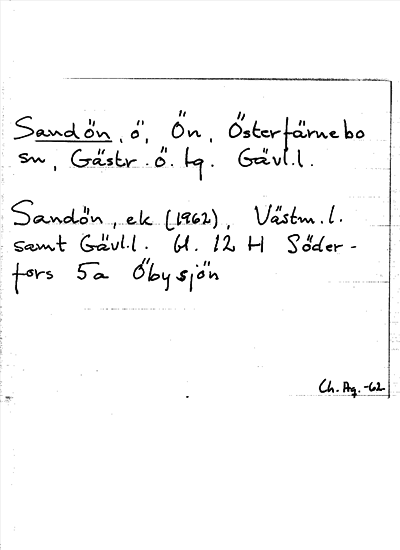 Sandön, ö, Ön, Österfärnebo
sn, Gästr. ö. tg. Gävl.l.
Sandön, ek (1962), Västm.l.
samt Gävl.l. bl. 12 H Söder-
fors 5a Öbysjön
Ch. Ag. -62